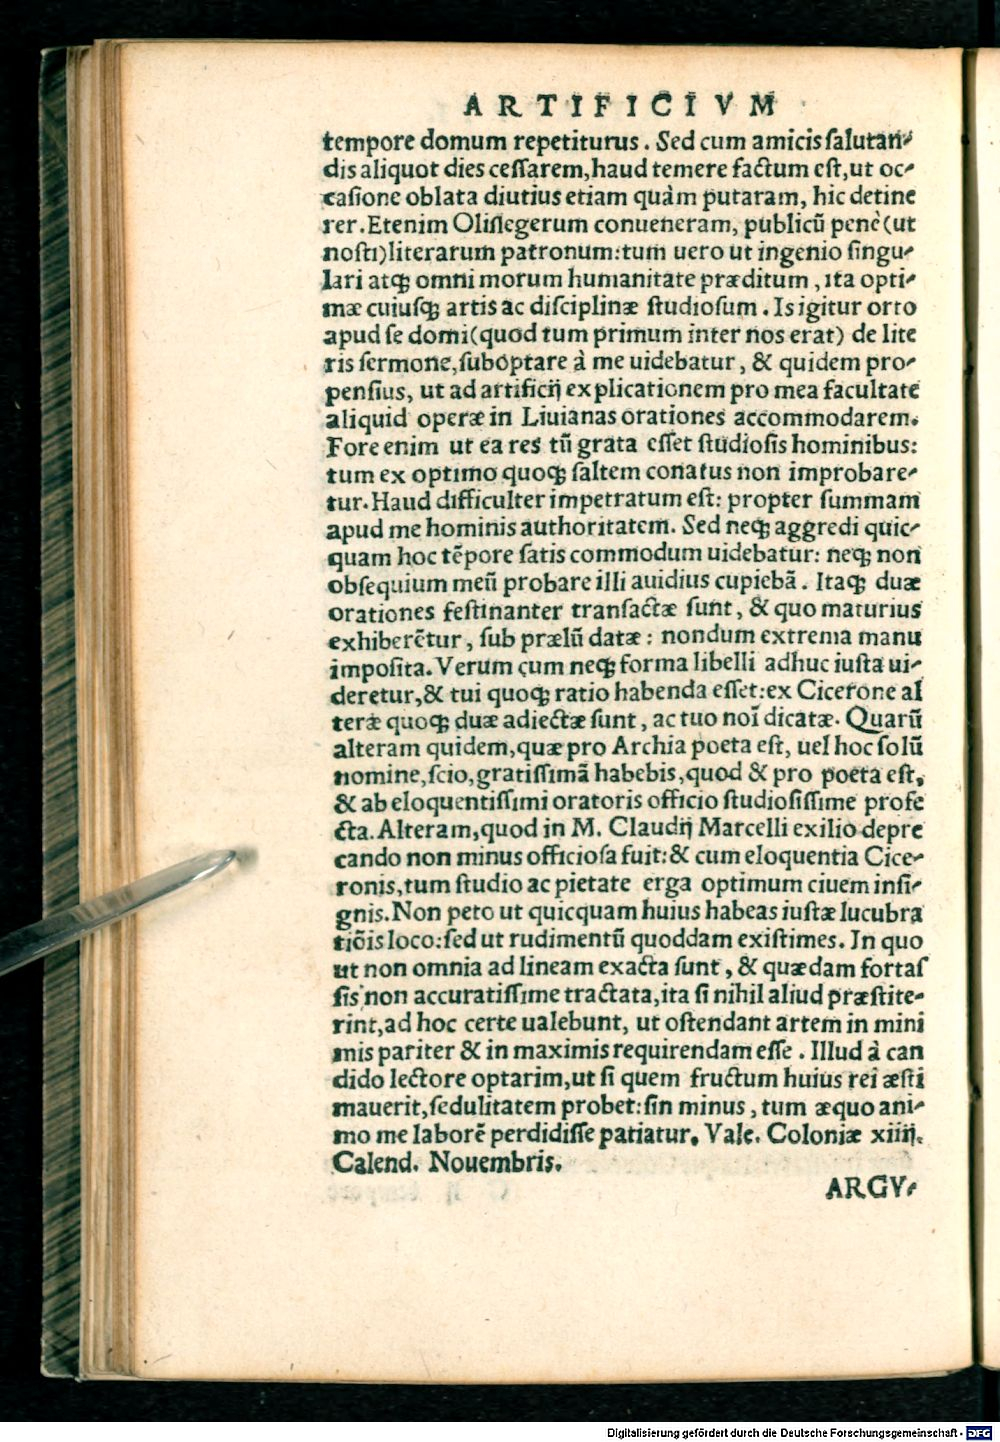 ARTIFICIVM
tempore domum repetiturus. Sed cum amicis ſalutan-
dis aliquot dies ceſſarem, haud temere factum eſt, ut oc-
caſione oblata diutius etiam quàm putaram, hic detine
rer. Etenim Oliſlegerum conueneram, publicũ penè (ut
noſti) literarum patronum: tum uero ut ingenio ſingu-
lari atqꝫ omni morum humanitate præditum, ita opti-
mæ cuiuſqꝫ artis ac diſciplinæ ſtudioſum. Is igitur orto
apud ſe domi (quod tum primum inter nos erat) de lite
ris ſermone, ſuboptare à me uidebatur, & quidem pro-
penſius, ut ad artificij explicationem pro mea facultate
aliquid operæ in Liuianas orationes accommodarem.
Fore enim ut ea res tũ grata eſſet ſtudioſis hominibus:
tum ex optimo quoqꝫ ſaltem conatus non improbare-
tur. Haud difficulter impetratum eſt: propter ſummam
apud me hominis authoritatem. Sed neqꝫ aggredi quic-
quam hoc tẽpore ſatis commodum uidebatur: neqꝫ non
obſequium meũ probare illi auidius cupiebã. Itaqꝫ duæ
orationes feſtinanter tranſactæ ſunt, & quo maturius
exhiberẽtur, ſub prælũ datæ: nondum extrema manu
impoſita. Verum cum neqꝫ forma libelli adhuc iuſta ui-
deretur, & tui quoqꝫ ratio habenda eſſet: ex Cicerone al
teræ quoqꝫ duæ adiectæ ſunt, ac tuo noĩ dicatæ. Quarũ
alteram quidem, quæ pro Archia poeta eſt, uel hoc ſolũ
nomine, ſcio, gratiſſimã habebis, quod & pro poeta eſt,
& ab eloquentiſſimi oratoris officio ſtudioſiſſime profe
cta. Alteram, quod in M. Claudij Marcelli exilio depre
cando non minus officioſa fuit: & cum eloquentia Cice-
ronis, tum ſtudio ac pietate erga optimum ciuem inſi-
gnis. Non peto ut quicquam huius habeas iuſtæ lucubra
tiõis loco: ſed ut rudimentũ quoddam exiſtimes. In quo
ut non omnia ad lineam exacta ſunt, & quædam fortaſ
ſis non accuratiſſime tractata, ita ſi nihil aliud præſtite-
rint, ad hoc certe ualebunt, ut oſtendant artem in mini
mis pariter & in maximis requirendam eſſe. Illud à can
dido lectore optarim, ut ſi quem fructum huius rei æſti
mauerit, ſedulitatem probet: ſin minus, tum æquo ani-
mo me laborẽ perdidiſſe patiatur. Vale. Coloniæ xiiij.
Calend. Nouembris.
ARGV-
Digitalisierung gefördert durch die Deutsche Forschungsgemeinschaft - DFG